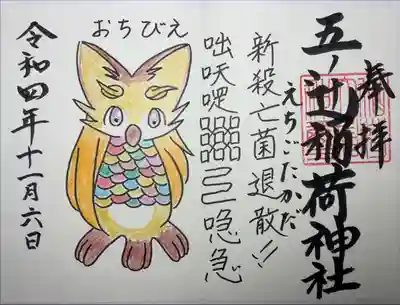 奉拝
五ノ辻稲荷神社
えちごたかだ
新殺亡菌退散!!
咄吠啶
唸急
おちびえ
令和四年十一月六日